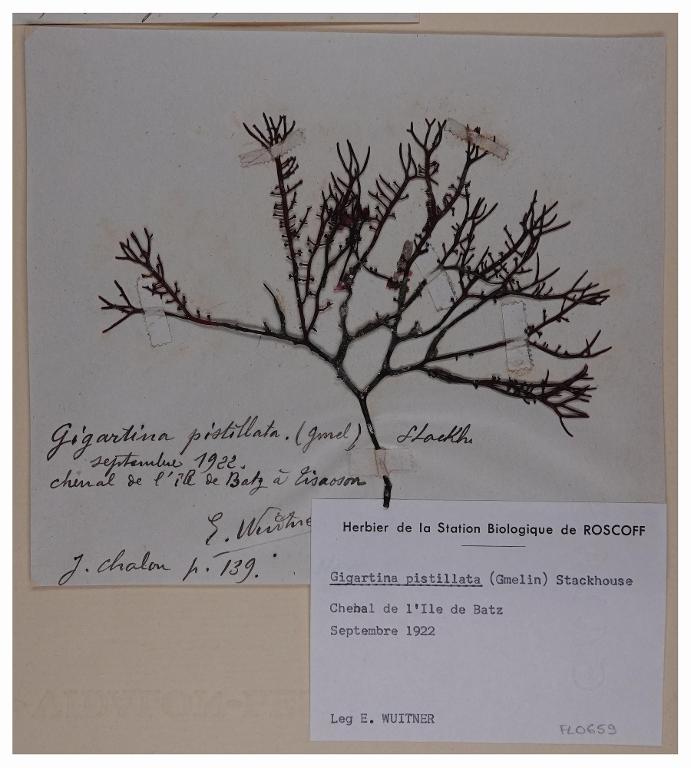 Gigartina pistillata. (Gmel) Stackh
septembre 1922.
chenal de l'île de Batz à Tisaoson
E. Wuitne
J. Chalon p. 139.
Herbier de la Station Biologique de ROSCOFF
Gigartina pistillata (Gmelin) Stackhouse
Chehal de l'Ile de Batz
Septembre 1922
Leg E. WUITNER
FL0659